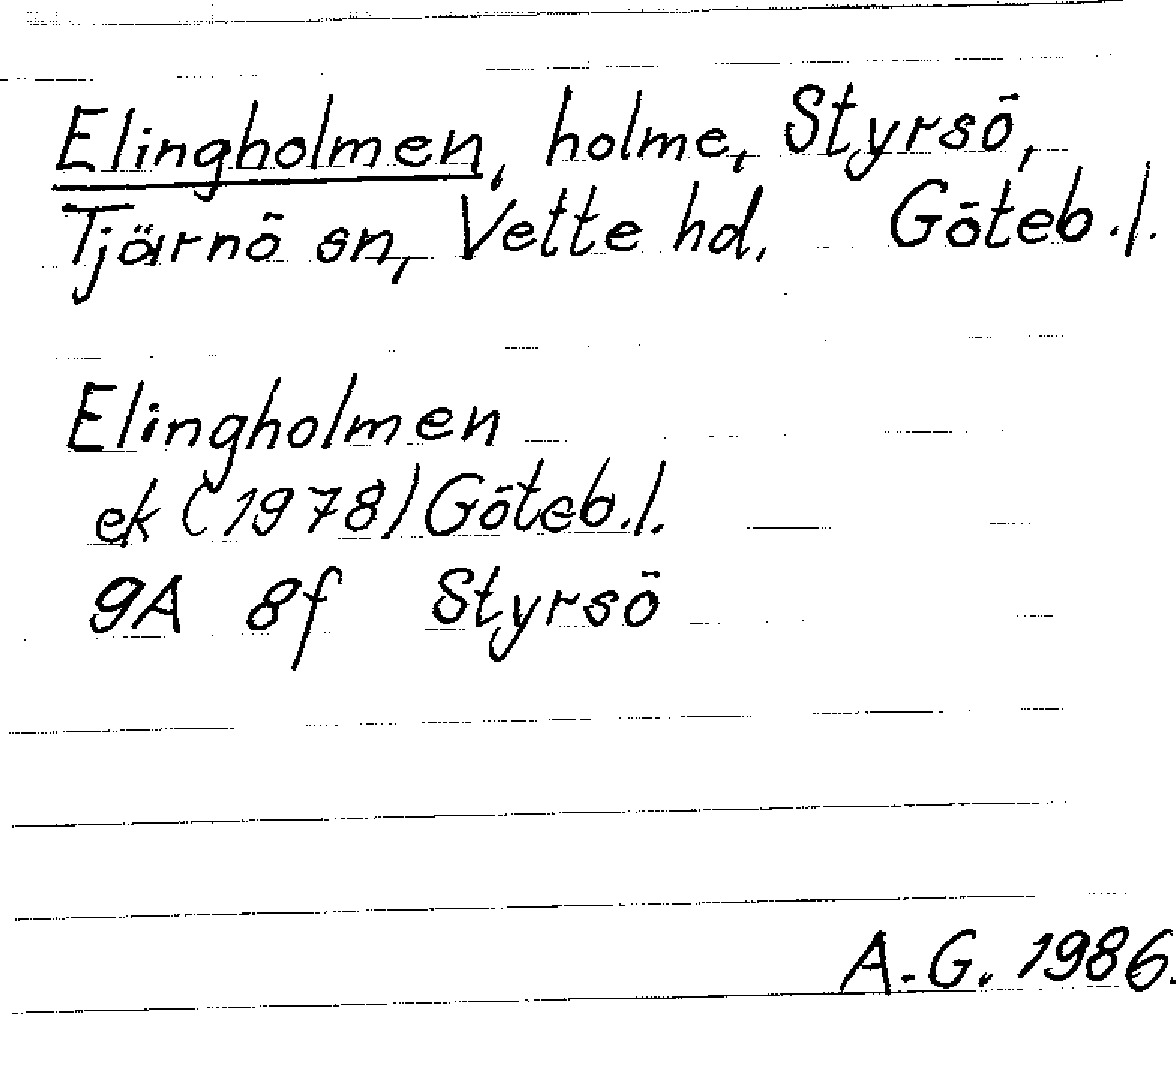 Elingholmen, holme, Styrsö,
Tjärnö sn, Vette hd. Göteb.l.
Elingholmen
ek (1978) Göteb.l.
9A 8f Styrsö
A.-G. 1986.